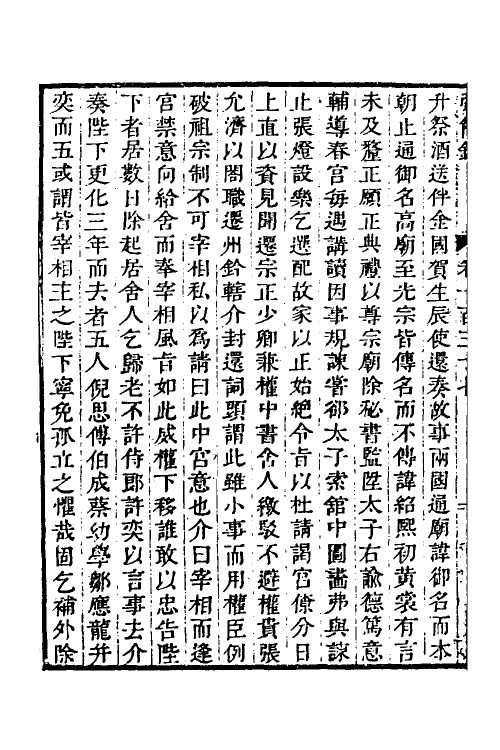 升祭酒送伴金國賀生辰使還奏故事兩國通廟諱御名而本
朝止通御名高廟至光宗皆傳名而不傳諱紹熙初黃裳有言
未及釐正願正典禮以尊宗廟除祕書監陞太子右諭德篤意
輔導春宮每遇講讀因事規諫嘗卻太子索館中圖畫弗與諫
止張燈設樂乞選配故家以正始絶令旨以杜請謁官僚分日
上直以資見聞遷宗正少卿兼權中書舍人繳駮不避權貴張
允濟以閤職遷州鈐轄介封還詞頭謂此雖小事而用權臣例
破祖宗制不可宰相私以為請曰此中宮意也介曰宰相而逢
宮禁意向給舍而奉宰相風旨如此威權下移誰敢以忠告陛
下者居數日除起居舍人乞歸老不許侍郎許奕以言事去介
奏陛下更化三年而夫者五人倪思傅伯成蔡幼學鄒應龍并
奕而五或謂皆宰相主之陛下寧免孤立之懼哉固乞補外除